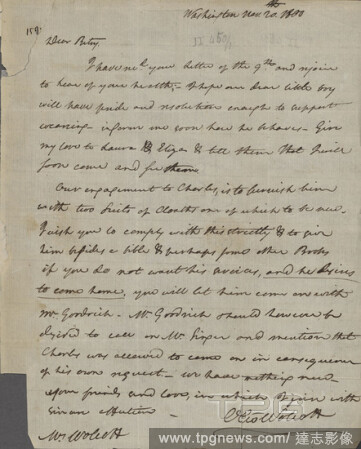 Washington Nov 20th 1800
158
Dear Betsy,
I have recd your letter of the 9th and rejoice
to hear of your health, I hope our dear little boy
will have pride and resolution enough to support
weaning - inform me soon how he behaves - Give
my love to Laura & Eliza & tell them that I will
soon come and see them
Our engagement to Charles, is to furnish him
with two Suits of Cloaths one of which to be new.
I wish you to comply with this strictly & to give
him besides a bible & perhaps some other Books
if you do not want his services, and he desires
to come home, you will let him come on with
Mr Goodrich - Mr Goodrich should however be
desired to call on Mr and mention that
Charles was allowed to come on in consequence
of his own request - we have nothing new
Your friends and love, in which I join with
sincere affection -
Oliv Wolcott
Mrs Wolcott
TPG
www.tpgnews.com | 達志影像